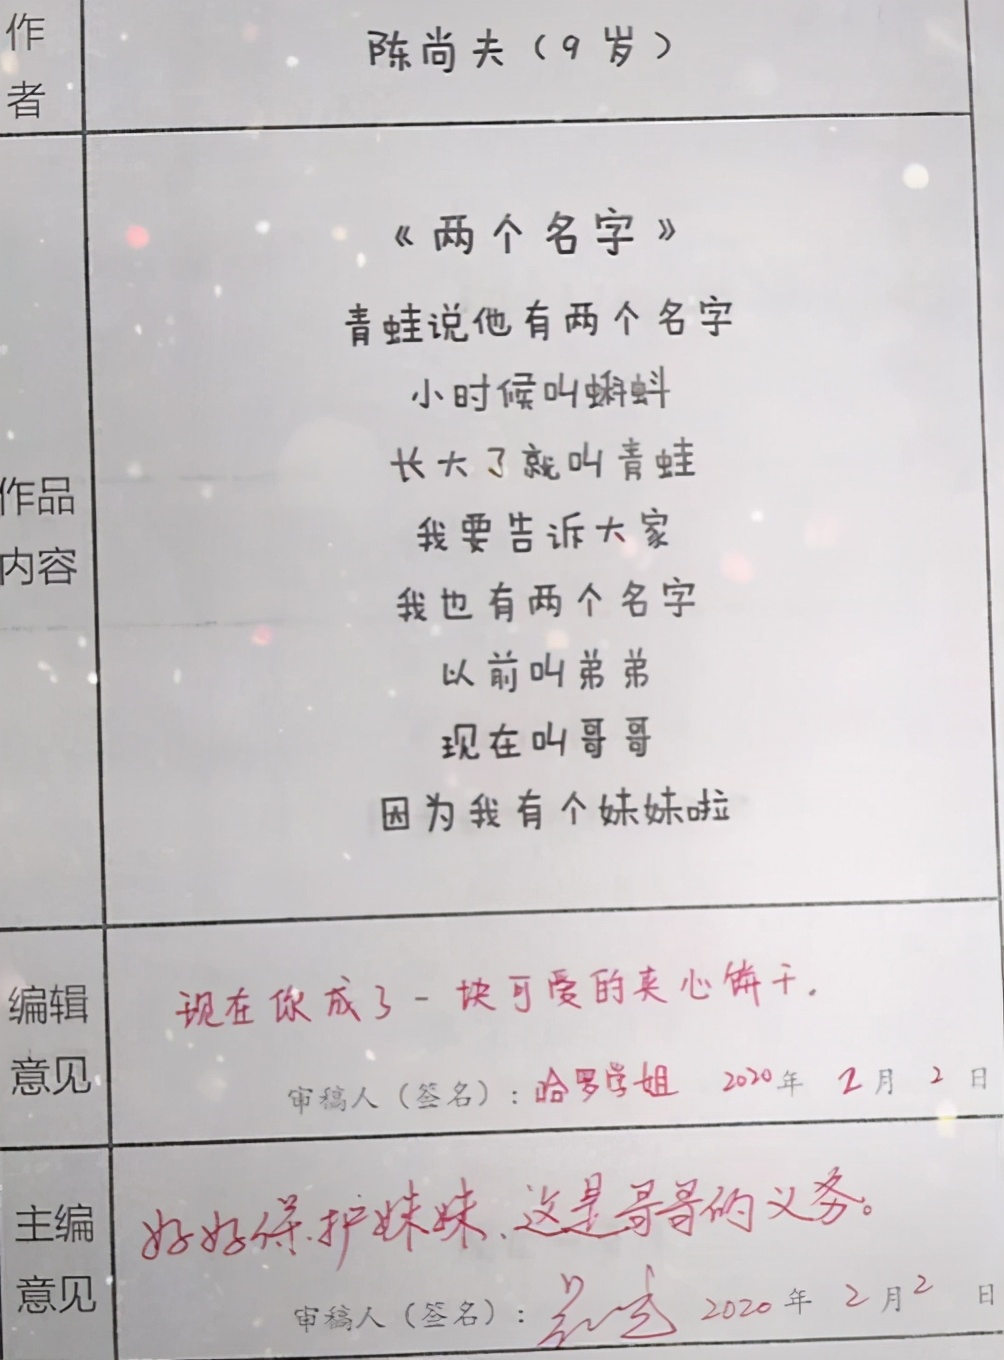 作者
陈尚夫（9岁）
作品内容
《两个名字》
青蛙说他有两个名字
小时候叫蝌蚪
长大了就叫青蛙
我要告诉大家
我也有两个名字
以前叫弟弟
现在叫哥哥
因为我有个妹妹啦
编辑意见
现在你成了一块可爱的夹心饼干.
审稿人（签名）：哈罗学姐 2020年 2月 2日
主编意见
好好保护妹妹、这是哥哥的义务。
审稿人（签名）： 2020年 2月2日